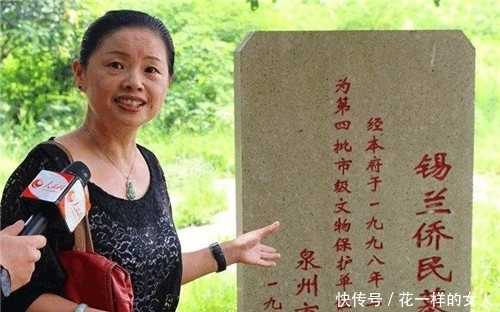 锡兰侨民墓
经本府于一九九八年
为第四批市级文物保护单
泉州市
一九
人民网
快传号／花一样的女人